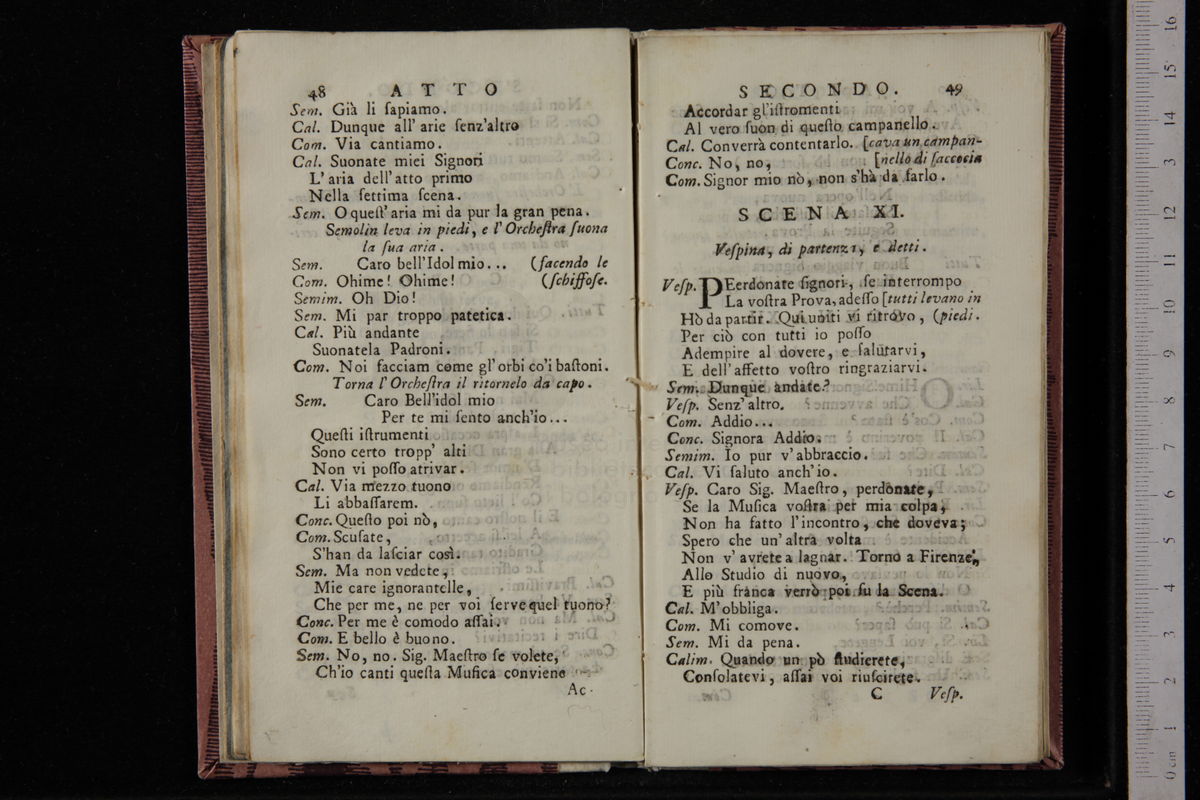 48 ATTO
Sem. Già li ſapiamo.
Cal. Dunque all' arie ſenz'altro
Com. Via cantiamo.
Cal. Suonate miei Signori
L' aria dell'atto primo
Nella ſettima ſcena.
Sem. O queſt'aria mi da pur la gran pena.
Semolin leva in piedi, e l'Orcheſtra ſuona
la ſua aria.
Sem. Caro bell'Idol mio... (facendo le
Com. Ohime! Ohime! (ſchiffoſe.
Semim. Oh Dio!
Sem. Mi par troppo patetica.
Cal. Più andante
Suonatela Padroni.
Com. Noi facciam come gl'orbi co'i baſtoni.
Torna l'Orcheſtra il ritornelo da capo.
Sem. Caro Bell'idol mio
Per te mi ſento anch'io...
Queſti iſtrumenti
Sono certo tropp' alti
Non vi poſſo atrivar.
Cal. Via mezzo tuono
Li abbaſſarem.
Conc. Queſto poi nò,
Com. Scuſate,
S'han da laſciar così.
Sem. Ma non vedete,
Mie care ignorantelle,
Che per me, ne per voi ſerve quel tuono?
Conc. Per me è comodo aſſai.
Com. E bello è buono.
Sem. No, no. Sig. Maeſtro ſe volete,
Ch'io canti queſta Muſica conviene
Ac-
SECONDO. 49
Accordar gl'iſtromenti
Al vero ſuon di queſto campanello.
Cal. Converrà contentarlo. [cava un campan-
Conc. No, no, [nello di ſaccocia
Com. Signor mio nò, non s'hà da farlo.
SCENA XI.
Veſpina, di partenza, e detti.
Veſp. PEerdonate ſignori, ſe interrompo
La voſtra Prova, adeſſo [tutti levano in
Hò da partir. Qui uniti vi ritrovo, (piedi.
Per ciò con tutti io poſſo
Adempire al dovere, e ſalutarvi,
E dell'affetto voſtro ringraziarvi.
Sem. Dunque andate?
Veſp. Senz'altro.
Com. Addio...
Conc. Signora Addio.
Semim. Io pur v'abbraccio.
Cal. Vi ſaluto anch'io.
Veſp. Caro Sig. Maeſtro, perdonate,
Se la Muſica voſtra per mia colpa,
Non ha fatto l'incontro, che doveva;
Spero che un'altra volta
Non v'avrete a lagnar. Torno a Firenze,
Allo Studio di nuovo,
E più franca verrò poi ſu la Scena.
Cal. M'obbliga.
Com. Mi comove.
Sem. Mi da pena.
Calim. Quando un pò ſtudierete,
Conſolatevi, aſſai voi riuſcirete.
C Veſp.
0 cm 1 2 3 4 5 6 7 8 9 10 11 12 13 14 15 16